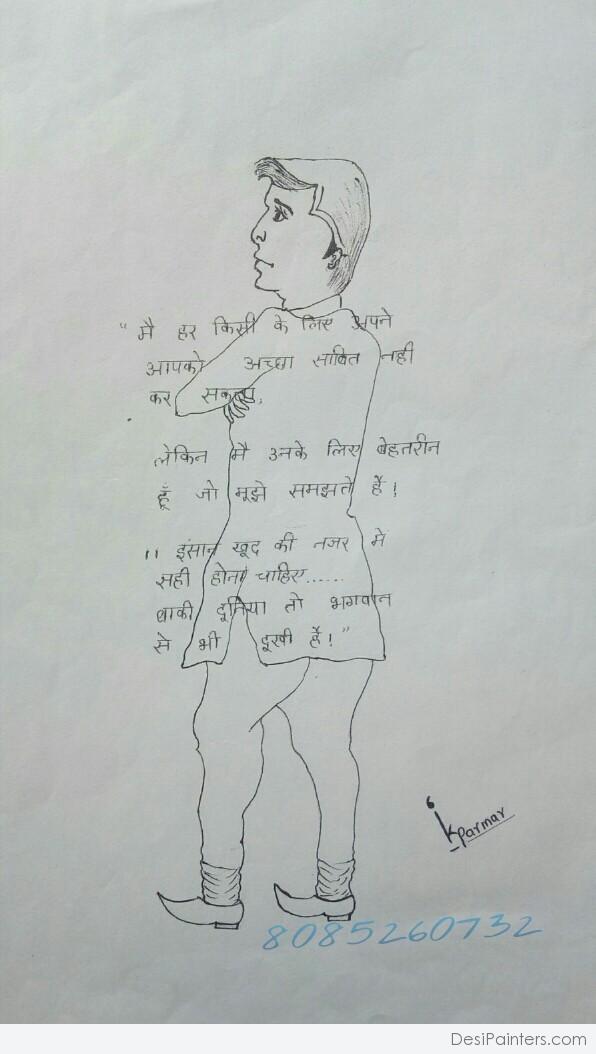 "मै हर किसी के लिए अपने
आपको अच्छा साबित नही
कर सकता,
लेकिन मै उनके लिए बेहतरीन
हूँ जो मूझे समझते हैं!
" इंसान खूद की नजर में
सही होना चाहिए......
बाकी दूनिया तो भगवान
से भी दूखी हैं!"
k parmar
8085260732
DesiPainters.com